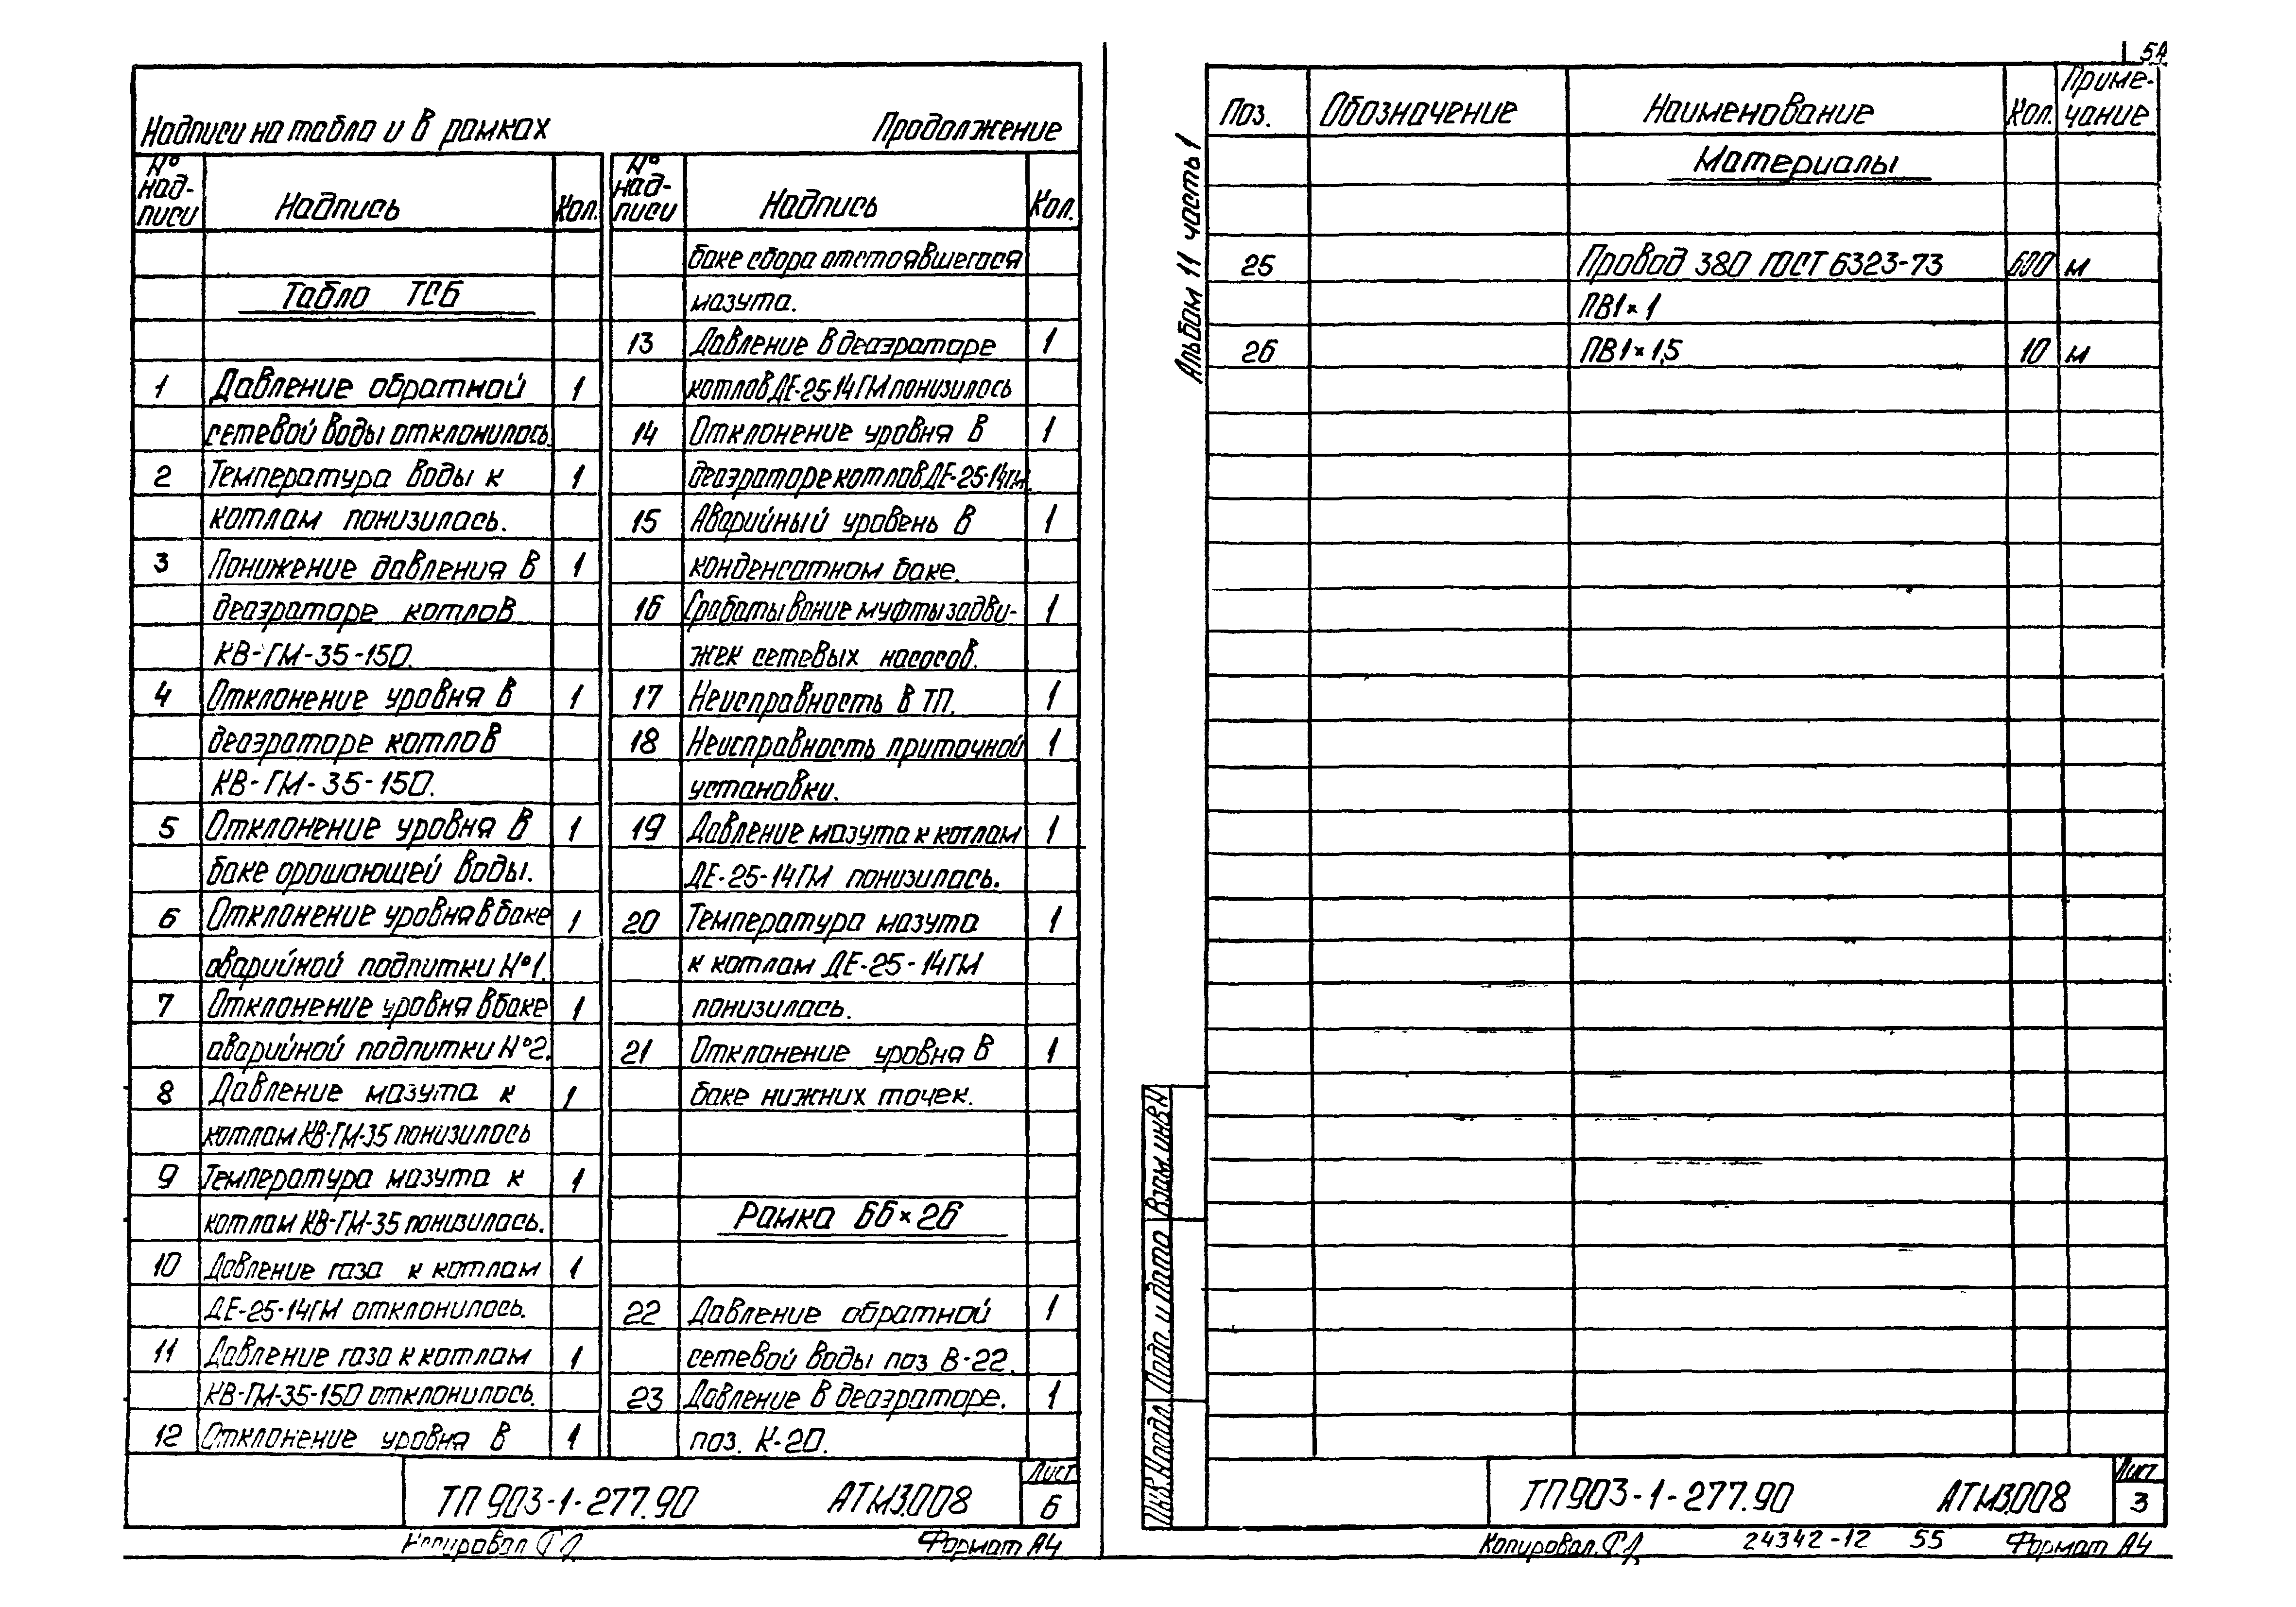 Надписи на табло и в рамках Продолжение
№ надписи Надпись Кол.
Табло ТСБ
1 Давление обратной 1
сетевой воды отклонилось.
2 Температура воды к 1
котлам понизилась.
3 Понижение давления в 1
деаэраторе котлов
КВ-ГМ-35-150.
4 Отклонение уровня в 1
деаэраторе котлов
КВ-ГМ-35-150.
5 Отклонение уровня в 1
баке орошающей воды.
6 Отклонение уровня в баке 1
аварийной подпитки №1.
7 Отклонение уровня в баке 1
аварийной подпитки №2.
8 Давление мазута к 1
котлам КВ-ГМ-35 понизилось
9 Температура мазута к 1
котлам КВ-ГМ-35 понизилась.
10 Давление газа к котлам 1
ДЕ-25-14ГМ отклонилось.
11 Давление газа к котлам 1
КВ-ГМ-35-150 отклонилось.
12 Отклонение уровня в 1
№ надписи Надпись Кол.
баке сбора отстоявшегося
мазута.
13 Давление в деаэраторе 1
котлов ДЕ-25-14ГМ понизилось
14 Отклонение уровня в 1
деаэраторе котлов ДЕ-25-14ГМ.
15 Аварийный уровень в 1
конденсатном баке.
16 Срабатывание муфты задви- 1
жек сетевых насосов.
17 Неисправность в ТП. 1
18 Неисправность приточной 1
установки.
19 Давление мазута к котлам 1
ДЕ-25-14ГМ понизилось.
20 Температура мазута 1
к котлам ДЕ-25-14ГМ
понизилась.
21 Отклонение уровня в 1
баке нижних точек.
Рамка 66×26
22 Давление обратной 1
сетевой воды поз В-22.
23 Давление в деаэраторе. 1
поз. К-20.
ТП 903-1-277.90 АТМ3.008 Лист 6
Копировал Формат А4
Альбом 11 часть 1
Поз. Обозначение Наименование Кол. Примечание
Материалы
25 Провод 380 ГОСТ 6323-73 600 м
ПВ1×1
26 ПВ1×1,5 10 м
Взам. инв. №
Подп. и дата
Инв. № подл.
ТП 903-1-277.90 АТМ3.008 Лист 3
Копировал. 24342-12 55 Формат А4